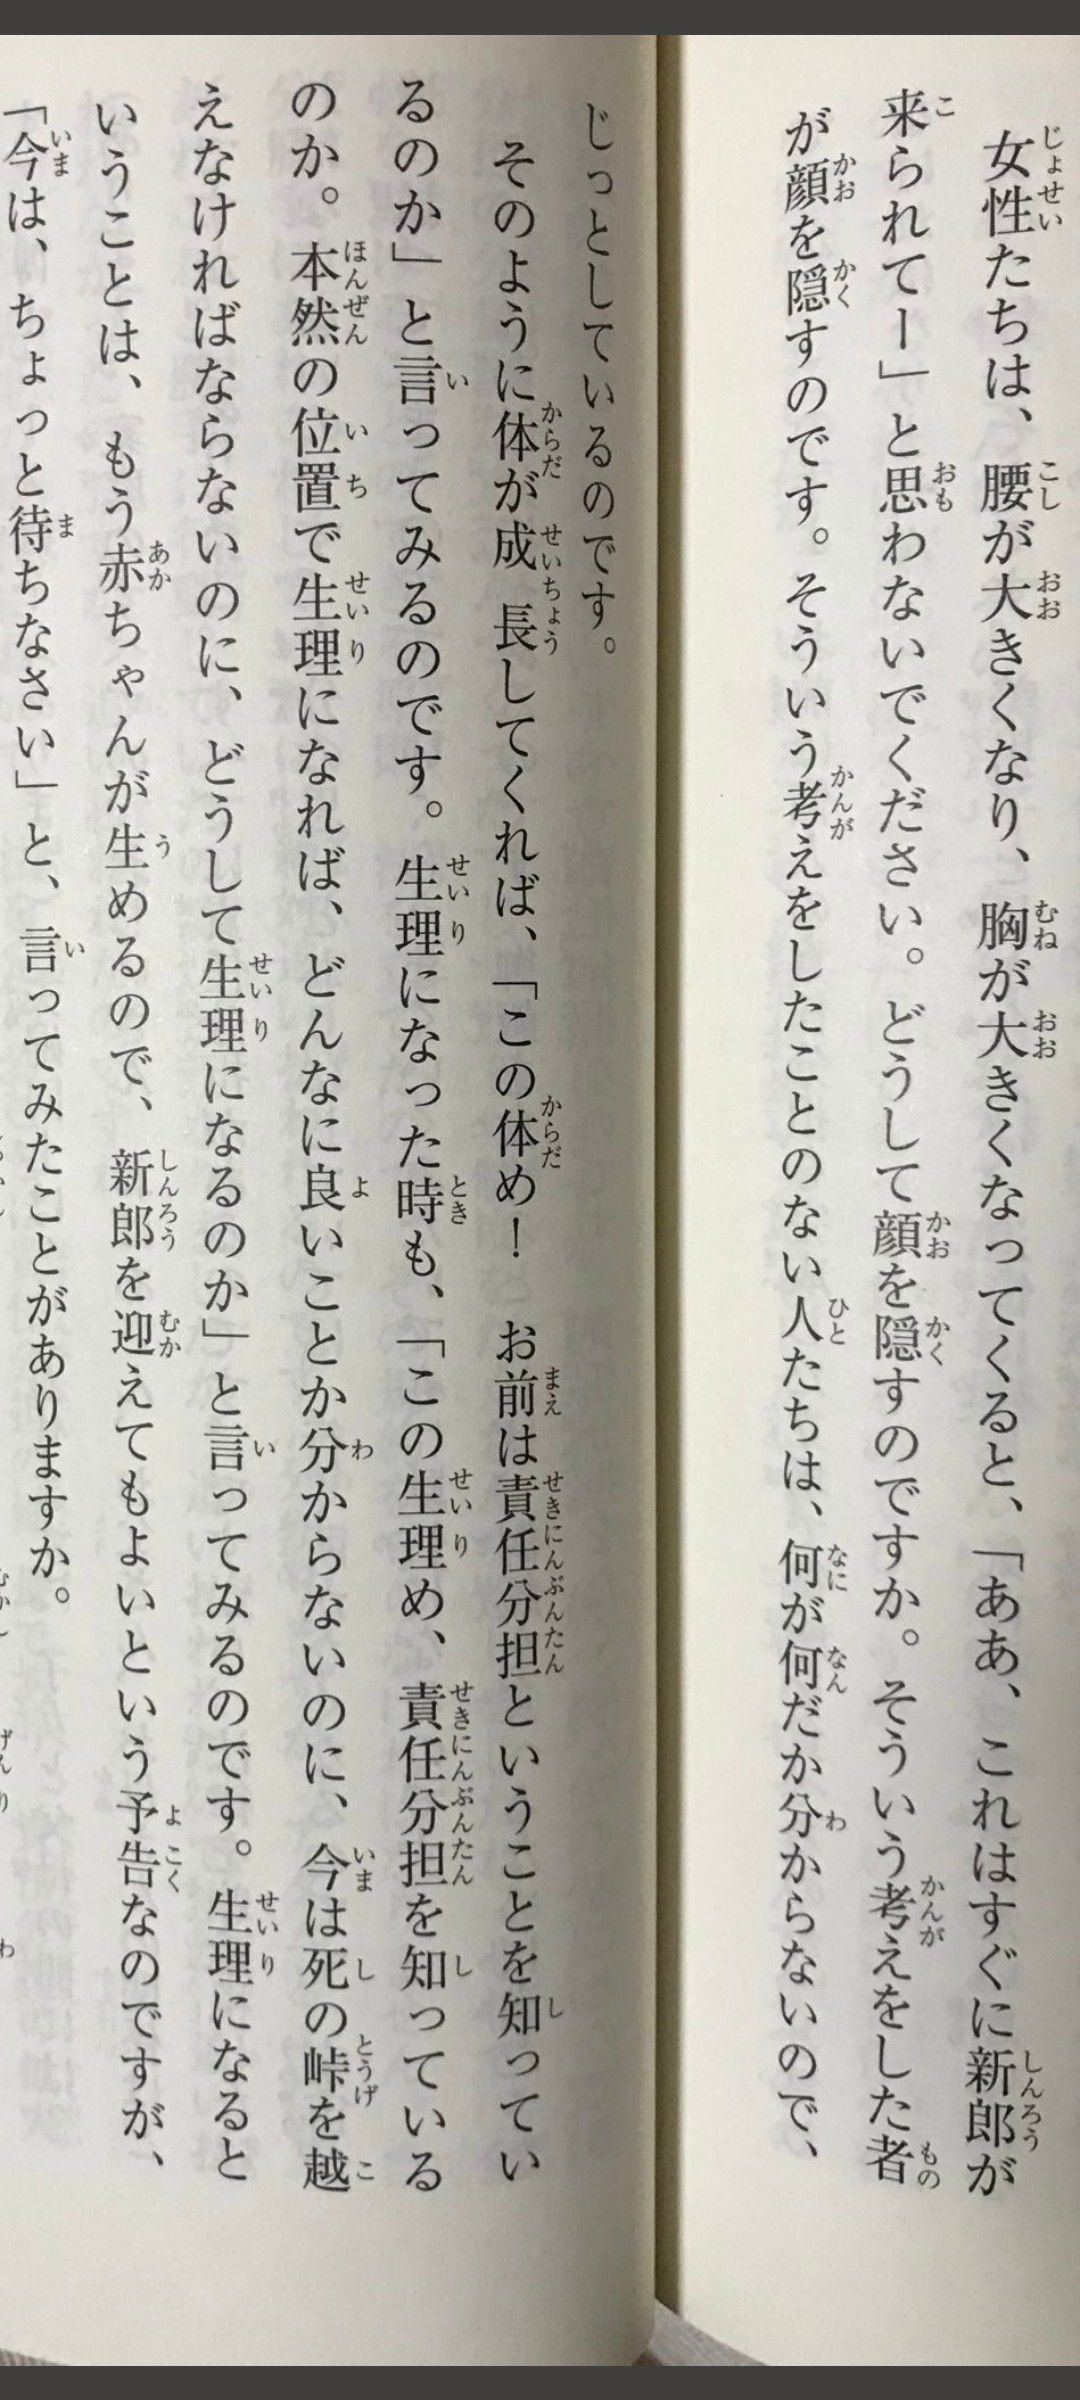 女性たちは、腰が大きくなり、胸が大きくなってくると、「ああ、これはすぐに新郎が
来られてー」と思わないでください。どうして顔を隠すのですか。そういう考えをした者
が顔を隠すのです。そういう考えをしたことのない人たちは、何が何だか分からないので、
じっとしているのです。
そのように体が成長してくれば、「この体め！　お前は責任分担ということを知ってい
るのか」と言ってみるのです。生理になった時も、「この生理め、責任分担を知っている
のか。本然の位置で生理になれば、どんなに良いことか分からないのに、今は死の峠を越
えなければならないのに、どうして生理になるのか」と言ってみるのです。生理になると
いうことは、もう赤ちゃんが生めるので、新郎を迎えてもよいという予告なのですが、
「今は、ちょっと待ちなさい」と、言ってみたことがありますか。